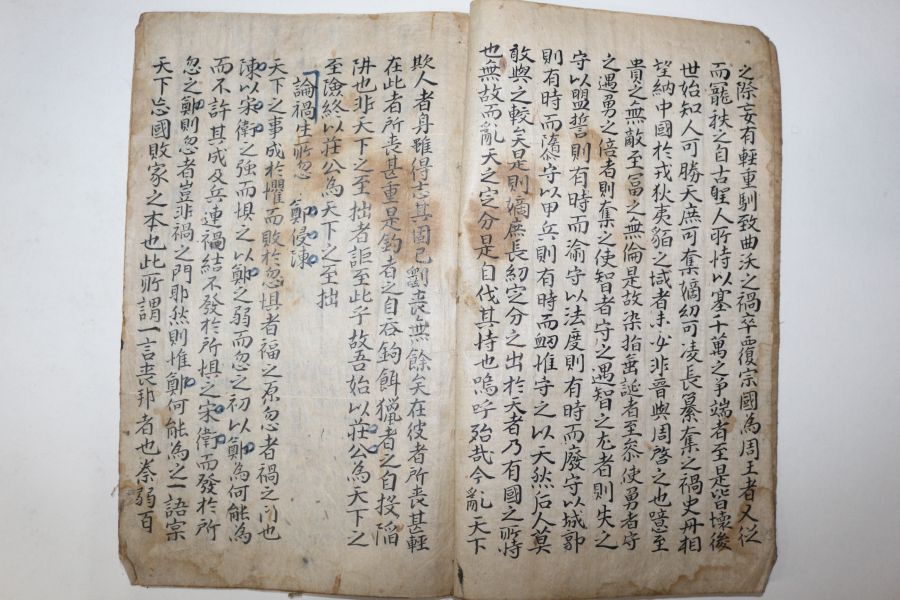 之除妄有輕重馴致曲沃之禍卒覆宗國為周王者又從
而寵秩之自古聖人所恃以塞千萬之爭端者至是皆壞後
世始知人可勝天庶可奪嫡幼可凌長簒奪之禍史冊相
望納中國於戎狄夷貊之域者未必非晉與周啓之也噫至
貴之無敵至冨之無倫是故染指垂涎者至衆使勇者守
之遇勇之倍者則奪之使智者守之遇智之尤者則失之
守以盟誓則有時而渝守以法度則有時而廢守以城郭
則有時而隳守以甲兵則有時而衂惟守之以天然后人莫
敢與之較矣是則嫡庶長幼定分之出於天者乃有國之所恃
也無故而亂天之定分是自伐其恃也嗚呼殆哉今亂天下
欺人者身雖得志其固已斵喪無餘矣在彼者所喪甚輕
在此者所喪甚重是釣者之自呑鉤餌獵者之自投陷
阱也非天下之至拙者詎至此乎故吾始以莊公為天下之
至險終以莊公為天下之至拙
論禍生所忽 鄭侵陳
天下之事成於懼而敗於忽惧者福之原忽者禍之门也
陳以宋衛之強而惧之以鄭之弱而忽之初以鄭為何能為
而不許其成及兵連禍結不發於所惧之宋衛而發於所
忽之鄭則忽者豈非禍之門耶然則惟鄭何能為之一語宲
天下忘國敗家之本也此所謂一言喪邦者也秦弱百